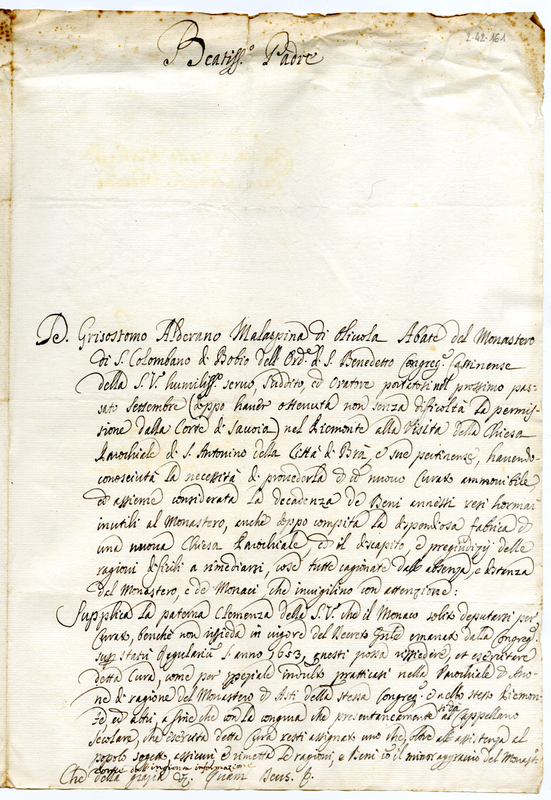 2-42-161
Beatiss.º Padre
D. Grisostomo Alderano Malaspina di Olivola Abate del Monastero
di S. Colombano di Bobio dell'Ord.e di S. Benedetto Congreg.e Cassinense
della S.V. humiliss.º servo, suddito, ed Oratore portatosi nel prossimo pas-
sato Settembre (doppo haver ottenuta non senza dificoltà la permis-
sione dalla Corte di Savoia) nel Piemonte alla Visita della Chiesa
Parochiale di S. Antonino della Città di Brà, e sue pertinenze, havendo
conosciuta la necessità di provederla d'un nuovo Curato ammovibile
ed assieme considerata la decadenza de Beni annessi resi hormai
inutili al Monastero, anche doppo compita la dispendiosa fabrica d'
una nuova Chiesa Parochiale, ed il discapito, e pregiudizij delle
ragioni dificili a rimediarsi, cose tutte cagionate dall'absenza, e distanza
del Monastero, e de Monaci, che invigilino con attenzione:
Supplica la paterna Clemenza della S.V. che il Monaco solito deputarsi per
Curato, benchè non risieda in vigore del Decreto emanato dalla Congreg.e
sup. statu Regularium l'anno 1653, questi possa rissiedere, et esercitare
detta Cura, come per speciale indulto praticasi nella Parochiale d'
ne di ragione del Monastero d'Asti della stessa Congreg.e e nello stesso Piemon-
te, ed altri, a fine che con la congrua che presentaneamente si dà al Cappellano
Secolare, che esercita detta Cura resti assignato uno che, oltre all'assistenza al
popolo soggetto, assicuri, e rimetta le ragioni, e Beni con minor aggravio del Monast.º
Che della grazia &c. Quam Deus &c.